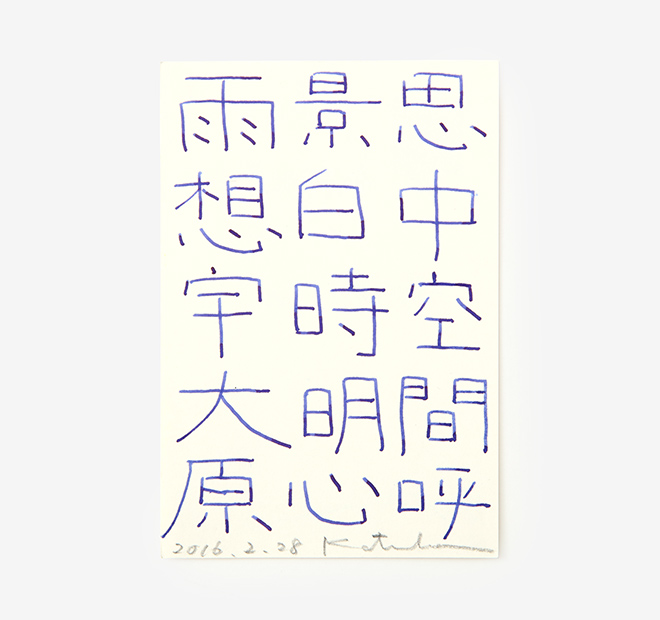 雨景思
想白中
宇時空
大明間
原心呼
2016.2.28